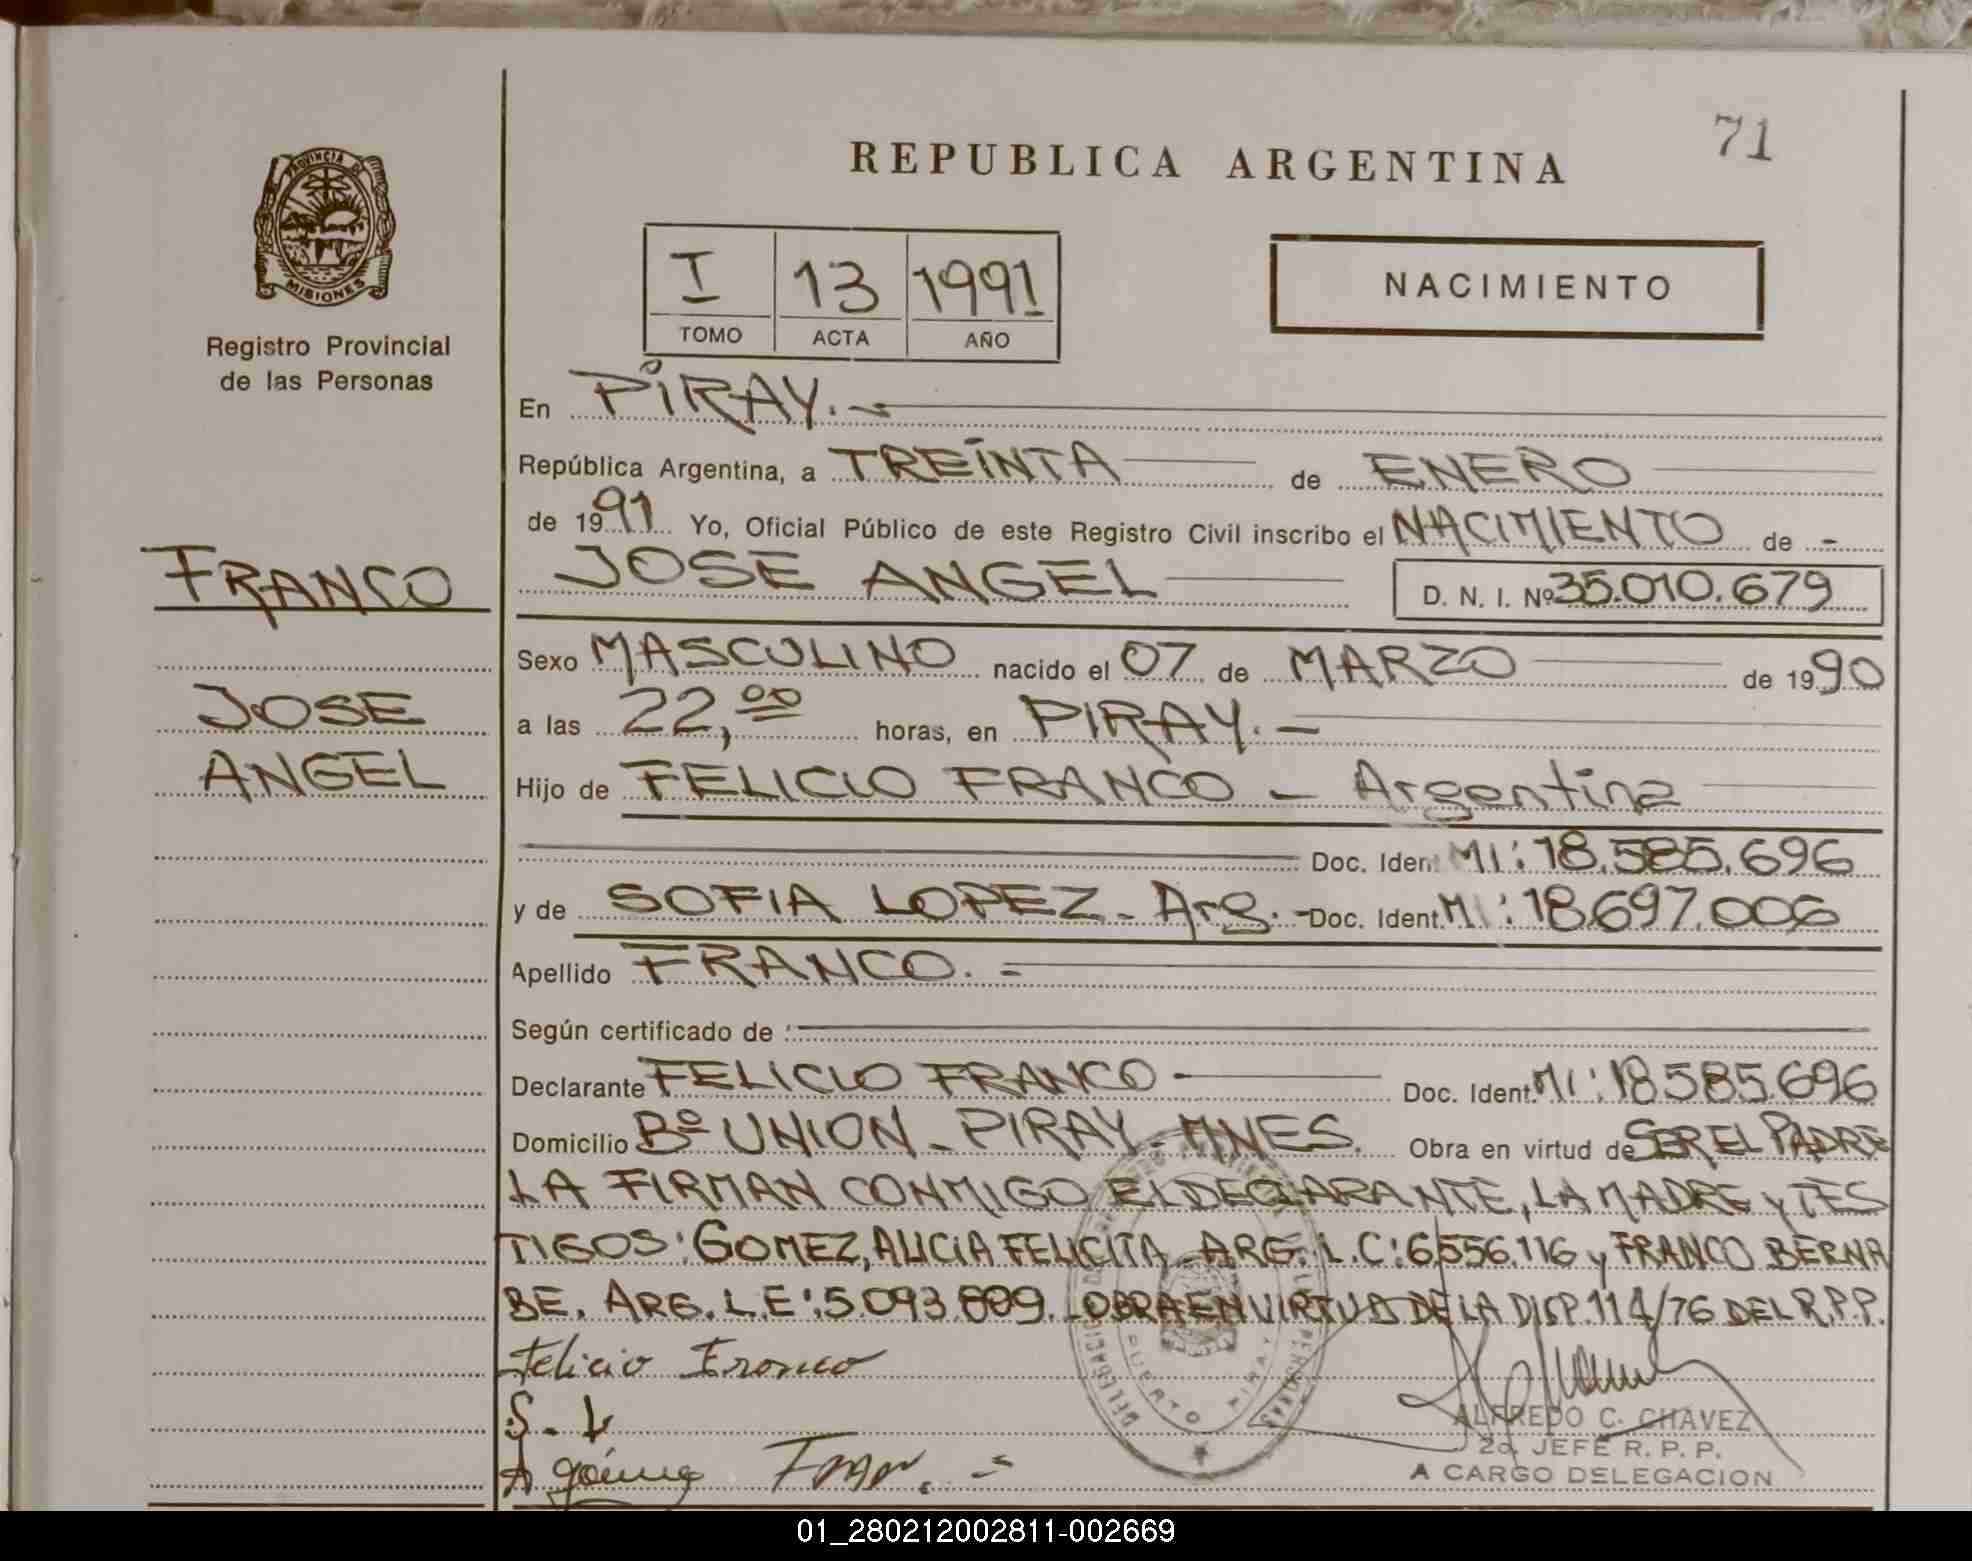 71
REPUBLICA ARGENTINA
PROVINCIA DE
MISIONES
Registro Provincial
de las Personas
I 13 1991
TOMO ACTA AÑO
NACIMIENTO
En PIRAY.-
República Argentina, a TREINTA de ENERO
de 1991 Yo, Oficial Público de este Registro Civil inscribo el NACIMIENTO de -
FRANCO
JOSE ANGEL D. N. I. Nº 35.010.679
Sexo MASCULINO nacido el 07 de MARZO de 1990
JOSE
a las 22,00 horas, en PIRAY.-
ANGEL
Hijo de FELICIO FRANCO - Argentina
Doc. Ident. MI: 18.585.696
y de SOFIA LOPEZ - Arg. - Doc. Ident. MI: 18.697.006
Apellido FRANCO.=
Según certificado de :
Declarante FELICIO FRANCO - Doc. Ident. MI: 18.585.696
Domicilio Bº UNION - PIRAY - MNES. Obra en virtud de SER EL PADRE
LA FIRMAN CONMIGO EL DECLARANTE, LA MADRE y TES
TIGOS: GOMEZ, ALICIA FELICITA - ARG. L.C: 6.556.116 y FRANCO BERNA
BE. ARG. L.E: 5.093.809. OBRA EN VIRTUD DE LA DISP. 114/76 DEL R.P.P.
Felicio Franco
S. L
PUERTO PIRAY
ALFREDO C. CHAVEZ
2o. JEFE R. P. P.
A CARGO DELEGACION
01_280212002811-002669